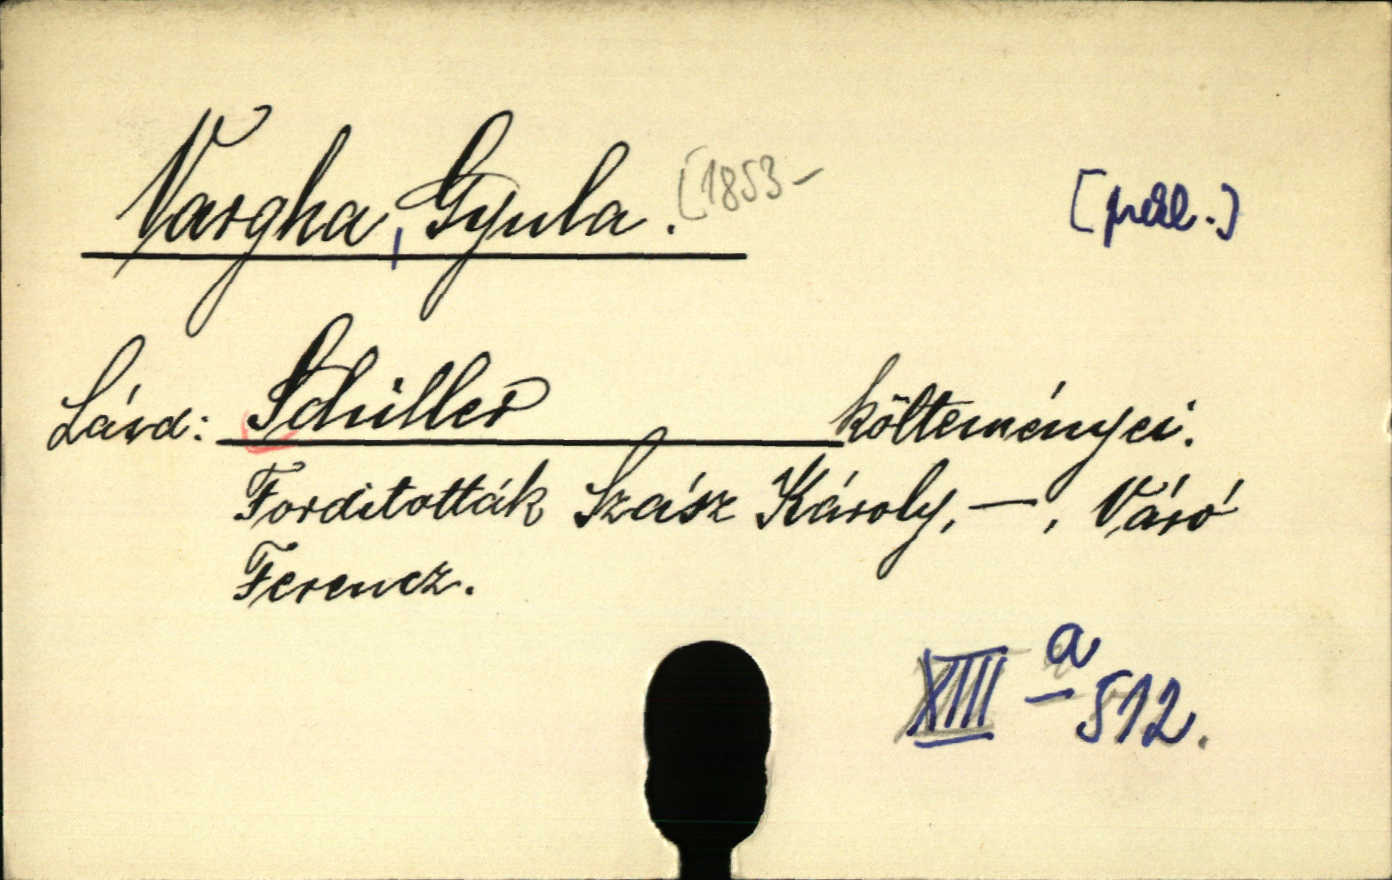 Vargha, Gyula. [1853-
Lásd: Schiller költeményei.
Forditották Szász Károly, —, Váró
Ferencz.
a
XIII — 512.